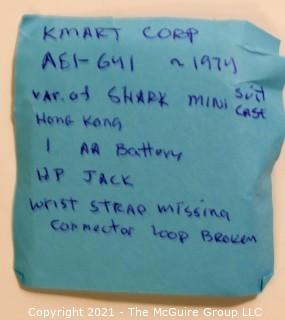 KMART CORP
AEI-641 ~1974
var. of SHARK MINI Suit Case
Hong Kong
1 AA Battery
HP JACK
Wrist STRAP Missing
Connector Loop Broken
Copyright © 2021 - The McGuire Group LLC